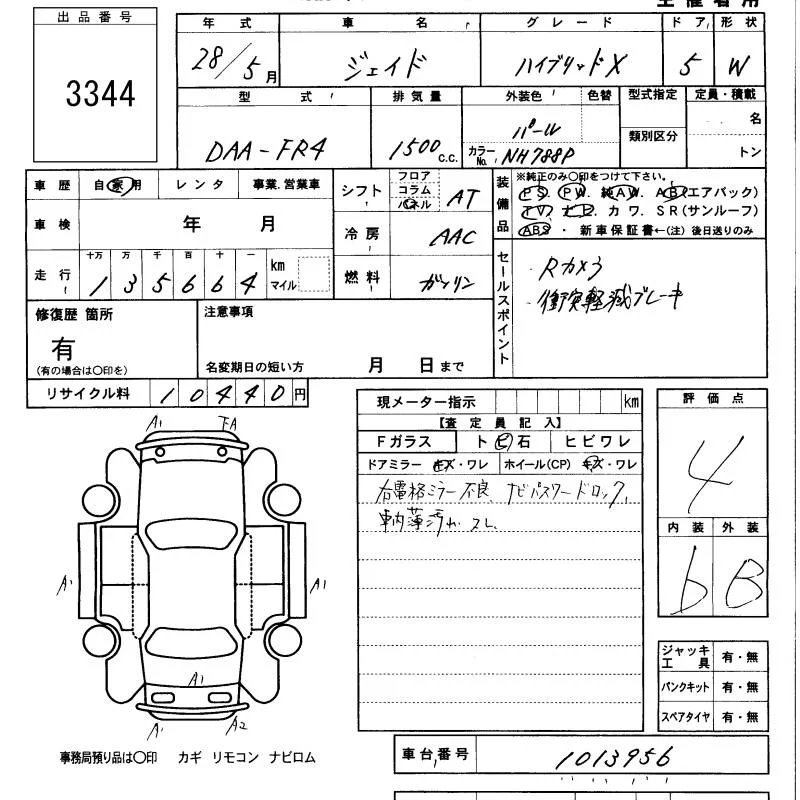 出品番号
3344
年式 車名 グレード ドア 形状
28/5月 ジェイド ハイブリッドX 5 W
型式 排気量 外装色 色替 型式指定 定員・積載
DAA-FR4 1500c.c. パール 名
カラーNo. NH788P 類別区分 トン
車歴 自家用 レンタ 事業.営業車
車検 年 月
走行 十万 万 千 百 十 一
135664 km マイル
シフト フロア コラム パネル AT
冷房 AAC
燃料 ガソリン
装備品
※純正のみ〇印をつけて下さい。
PS PW. 純AW. AB(エアバック)
TV. ナビ. カワ. SR(サンルーフ)
ABS・新車保証書←(注)後日送りのみ
セールスポイント
Rカメラ
衝突軽減ブレーキ
修復歴 箇所
有
(有の場合は〇印を)
注意事項
名変期日の短い方 月 日まで
リサイクル料 10440円
現メーター指示 km
【査定員記入】
Fガラス トビ石 ヒビワレ
ドアミラー キズ・ワレ ホイール(CP) キズ・ワレ
右電格ミラー不良、ナビパスワードロック、
車内薄汚れ スレ
評価点
4
内装 外装
b B
ジャッキ工具 有・無
パンクキット 有・無
スペアタイヤ 有・無
A1
A1 A1
A1
A1 A2
事務局預り品は〇印 カギ リモコン ナビロム
車台番号 1013956